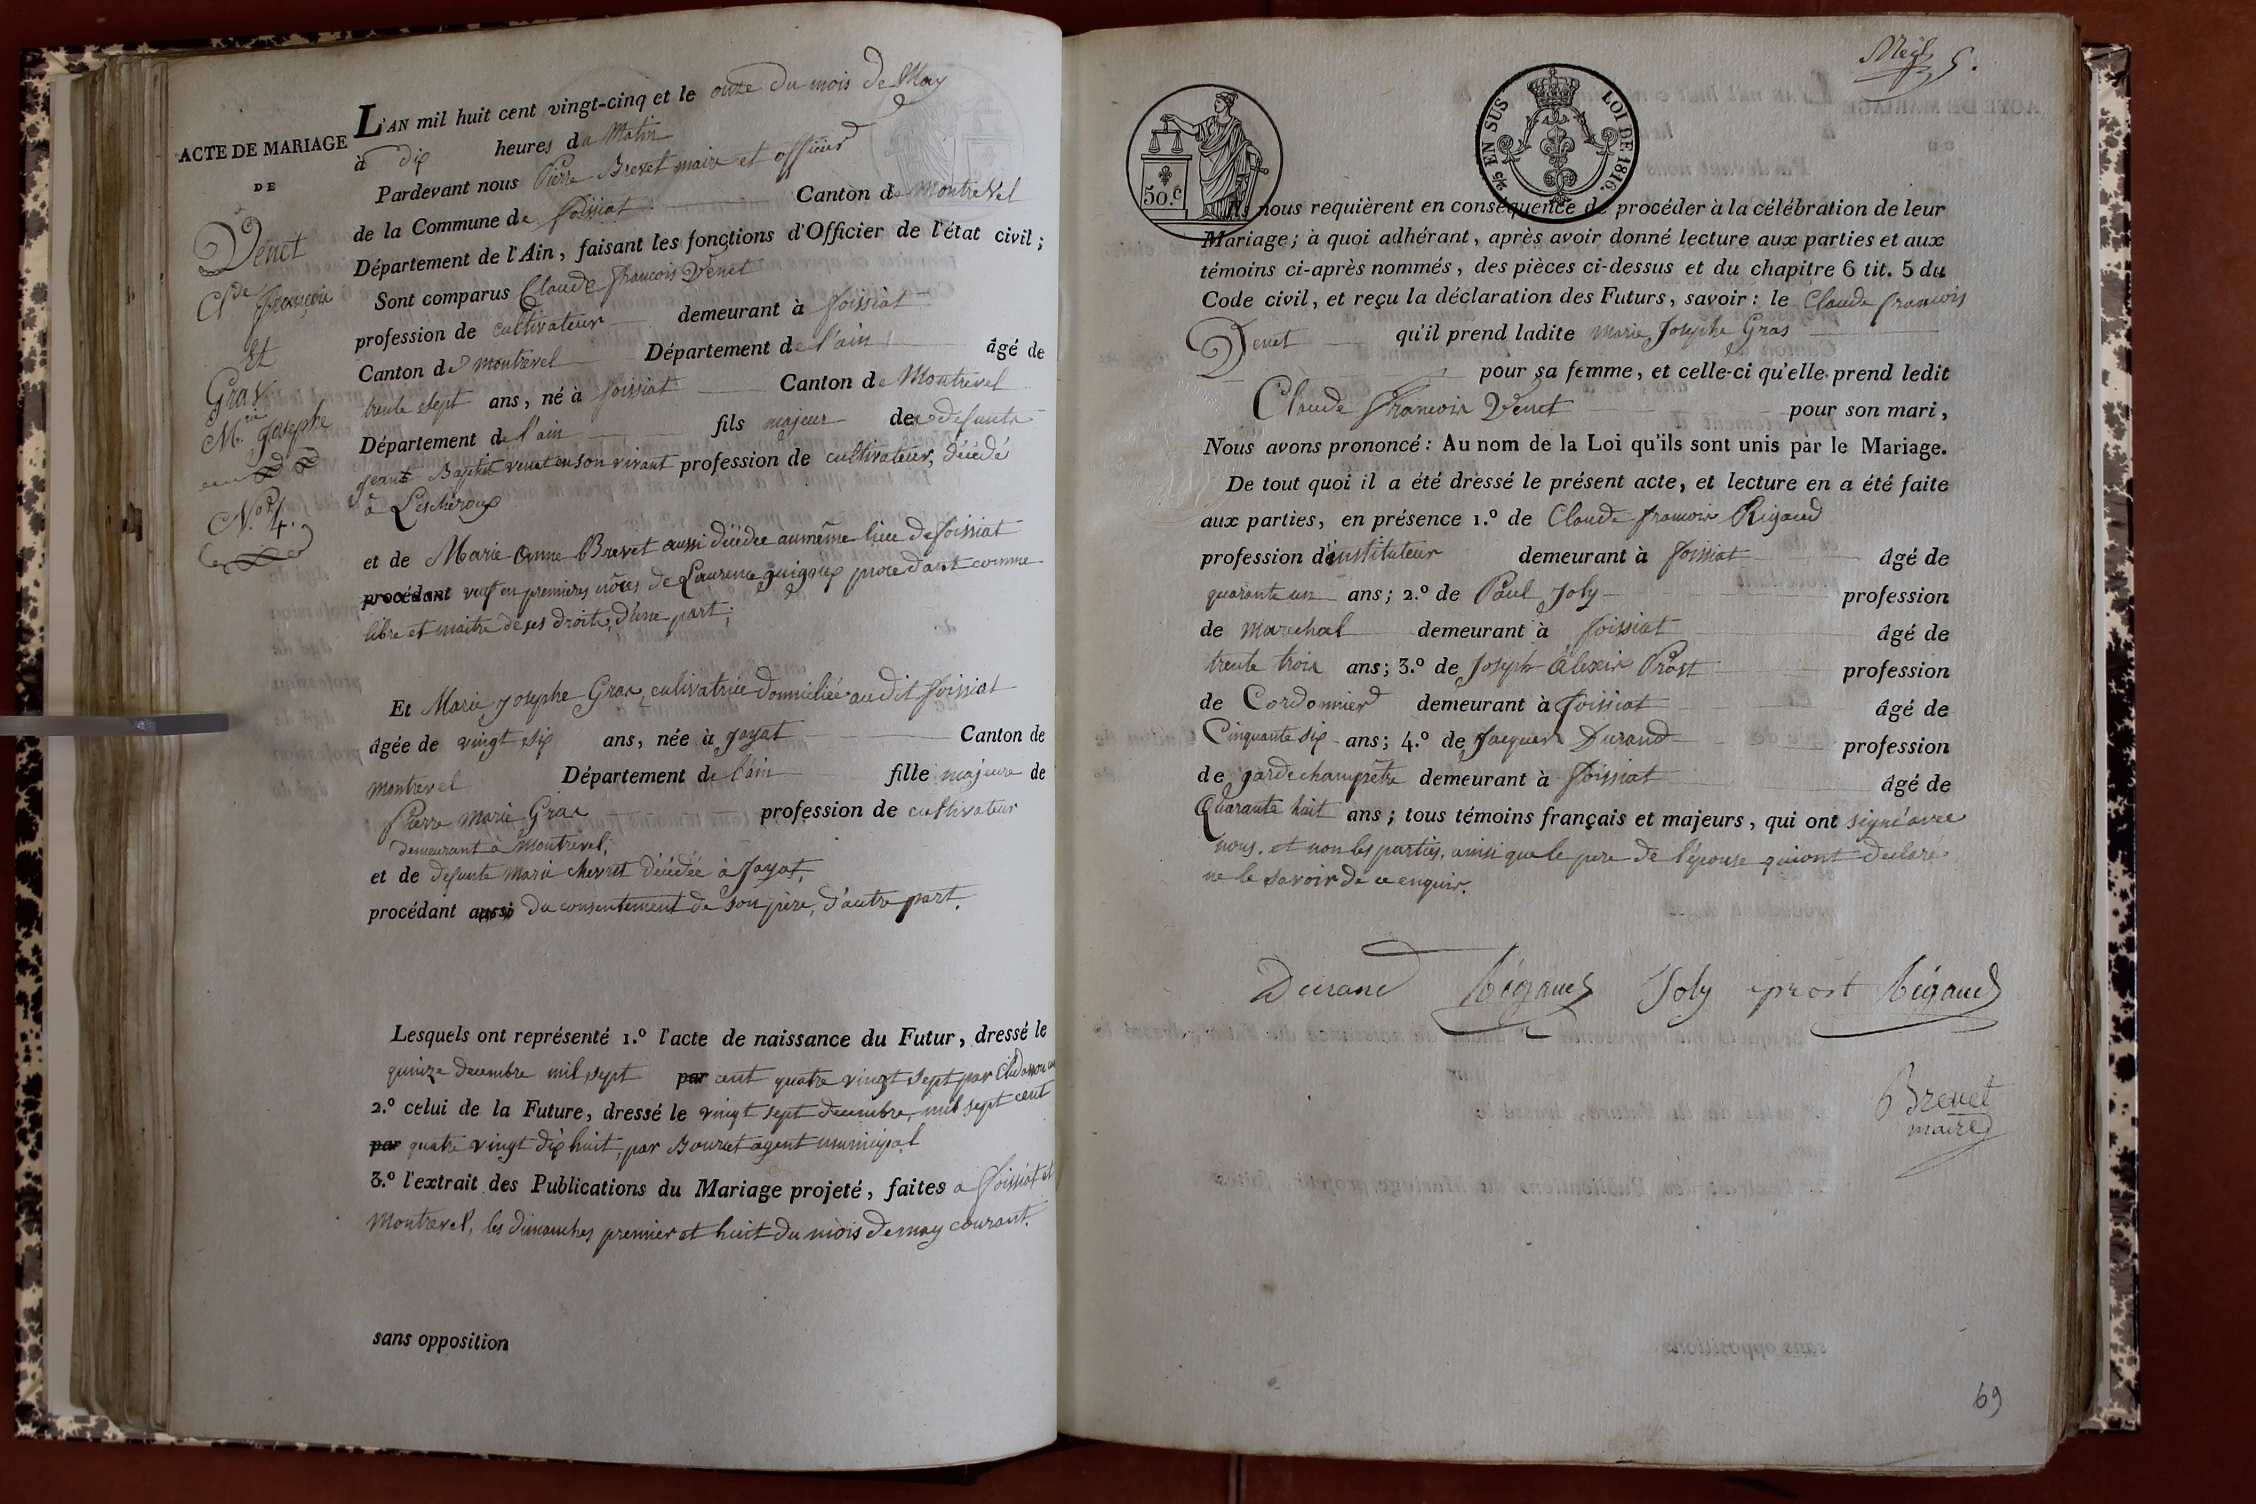 ACTE DE MARIAGE
DE
Venet
Cl.de françois
Et
Gras
M.rie Josephe
N.o 4.
L'AN mil huit cent vingt-cinq et le onze du mois de May
à dix heures du Matin
Pardevant nous Pierre Brevet maire et officier
de la Commune de foissiat Canton de Montrevel
Département de l'Ain, faisant les fonctions d'Officier de l'état civil;
Sont comparus Claude francois Venet
profession de cultivateur demeurant à foissiat
Canton de montrevel Département de l'ain âgé de
trente sept ans, né à foissiat Canton de Montrevel
Département de l'ain fils majeur de defunts
jean Baptiste venet en son vivant profession de cultivateur, décédé
à Lescheroux
et de Marie Anne Brevet aussi décédée au même lieu de foissiat
procédant veuf en premieres nôces de Laurence guigoux procedant comme
libre et maitre de ses droits, d'une part;
Et Marie Josephe Gras, cultivatrice domiciliée au dit foissiat
âgée de vingt six ans, née à jayat Canton de
montrevel Département de l'ain fille majeure de
Pierre marie Gras profession de cultivateur
demeurant à montrevel;
et de defunte marie chevret décédée à Jayat,
procédant aussi du consentement de son père, d'autre part.
Lesquels ont représenté 1.º l'acte de naissance du Futur, dressé le
quinze decembre mil sept par cent quatre vingt sept par
2.º celui de la Future, dressé le vingt sept decembre, mil sept cent
par quatre vingt dix huit, par Bouvet agent municipal
3.º l'extrait des Publications du Mariage projeté, faites a foissiat et
Montrevel, les dimanches premier et huit du mois de may courant.
sans opposition
5.
50.c
2/5 EN SUS LOI DE 1816.
Ils nous requièrent en conséquence de procéder à la célébration de leur
Mariage; à quoi adhérant, après avoir donné lecture aux parties et aux
témoins ci-après nommés, des pièces ci-dessus et du chapitre 6 tit. 5 du
Code civil, et reçu la déclaration des Futurs, savoir: le Claude francois
Venet qu'il prend ladite marie Josephe Gras
pour sa femme, et celle-ci qu'elle prend ledit
Claude francois Venet pour son mari,
Nous avons prononcé: Au nom de la Loi qu'ils sont unis par le Mariage.
De tout quoi il a été dressé le présent acte, et lecture en a été faite
aux parties, en présence 1.º de Claude francois Rigaud
profession d'instituteur demeurant à foissiat âgé de
quarante un ans; 2.º de Paul Joly profession
de marechal demeurant à foissiat âgé de
trente trois ans; 3.º de Joseph Alexis Prost profession
de Cordonnier demeurant à foissiat âgé de
Cinquante six ans; 4.º de Jacques Durand profession
de garde champêtre demeurant à foissiat âgé de
Quarante huit ans; tous témoins français et majeurs, qui ont signé avec
nous. et non les parties, ainsi que le pere de l'épouse qui ont declaré
ne le savoir de ce enquis.
Durand Rigaud Joly prost Rigaud
Brevet
maire
69